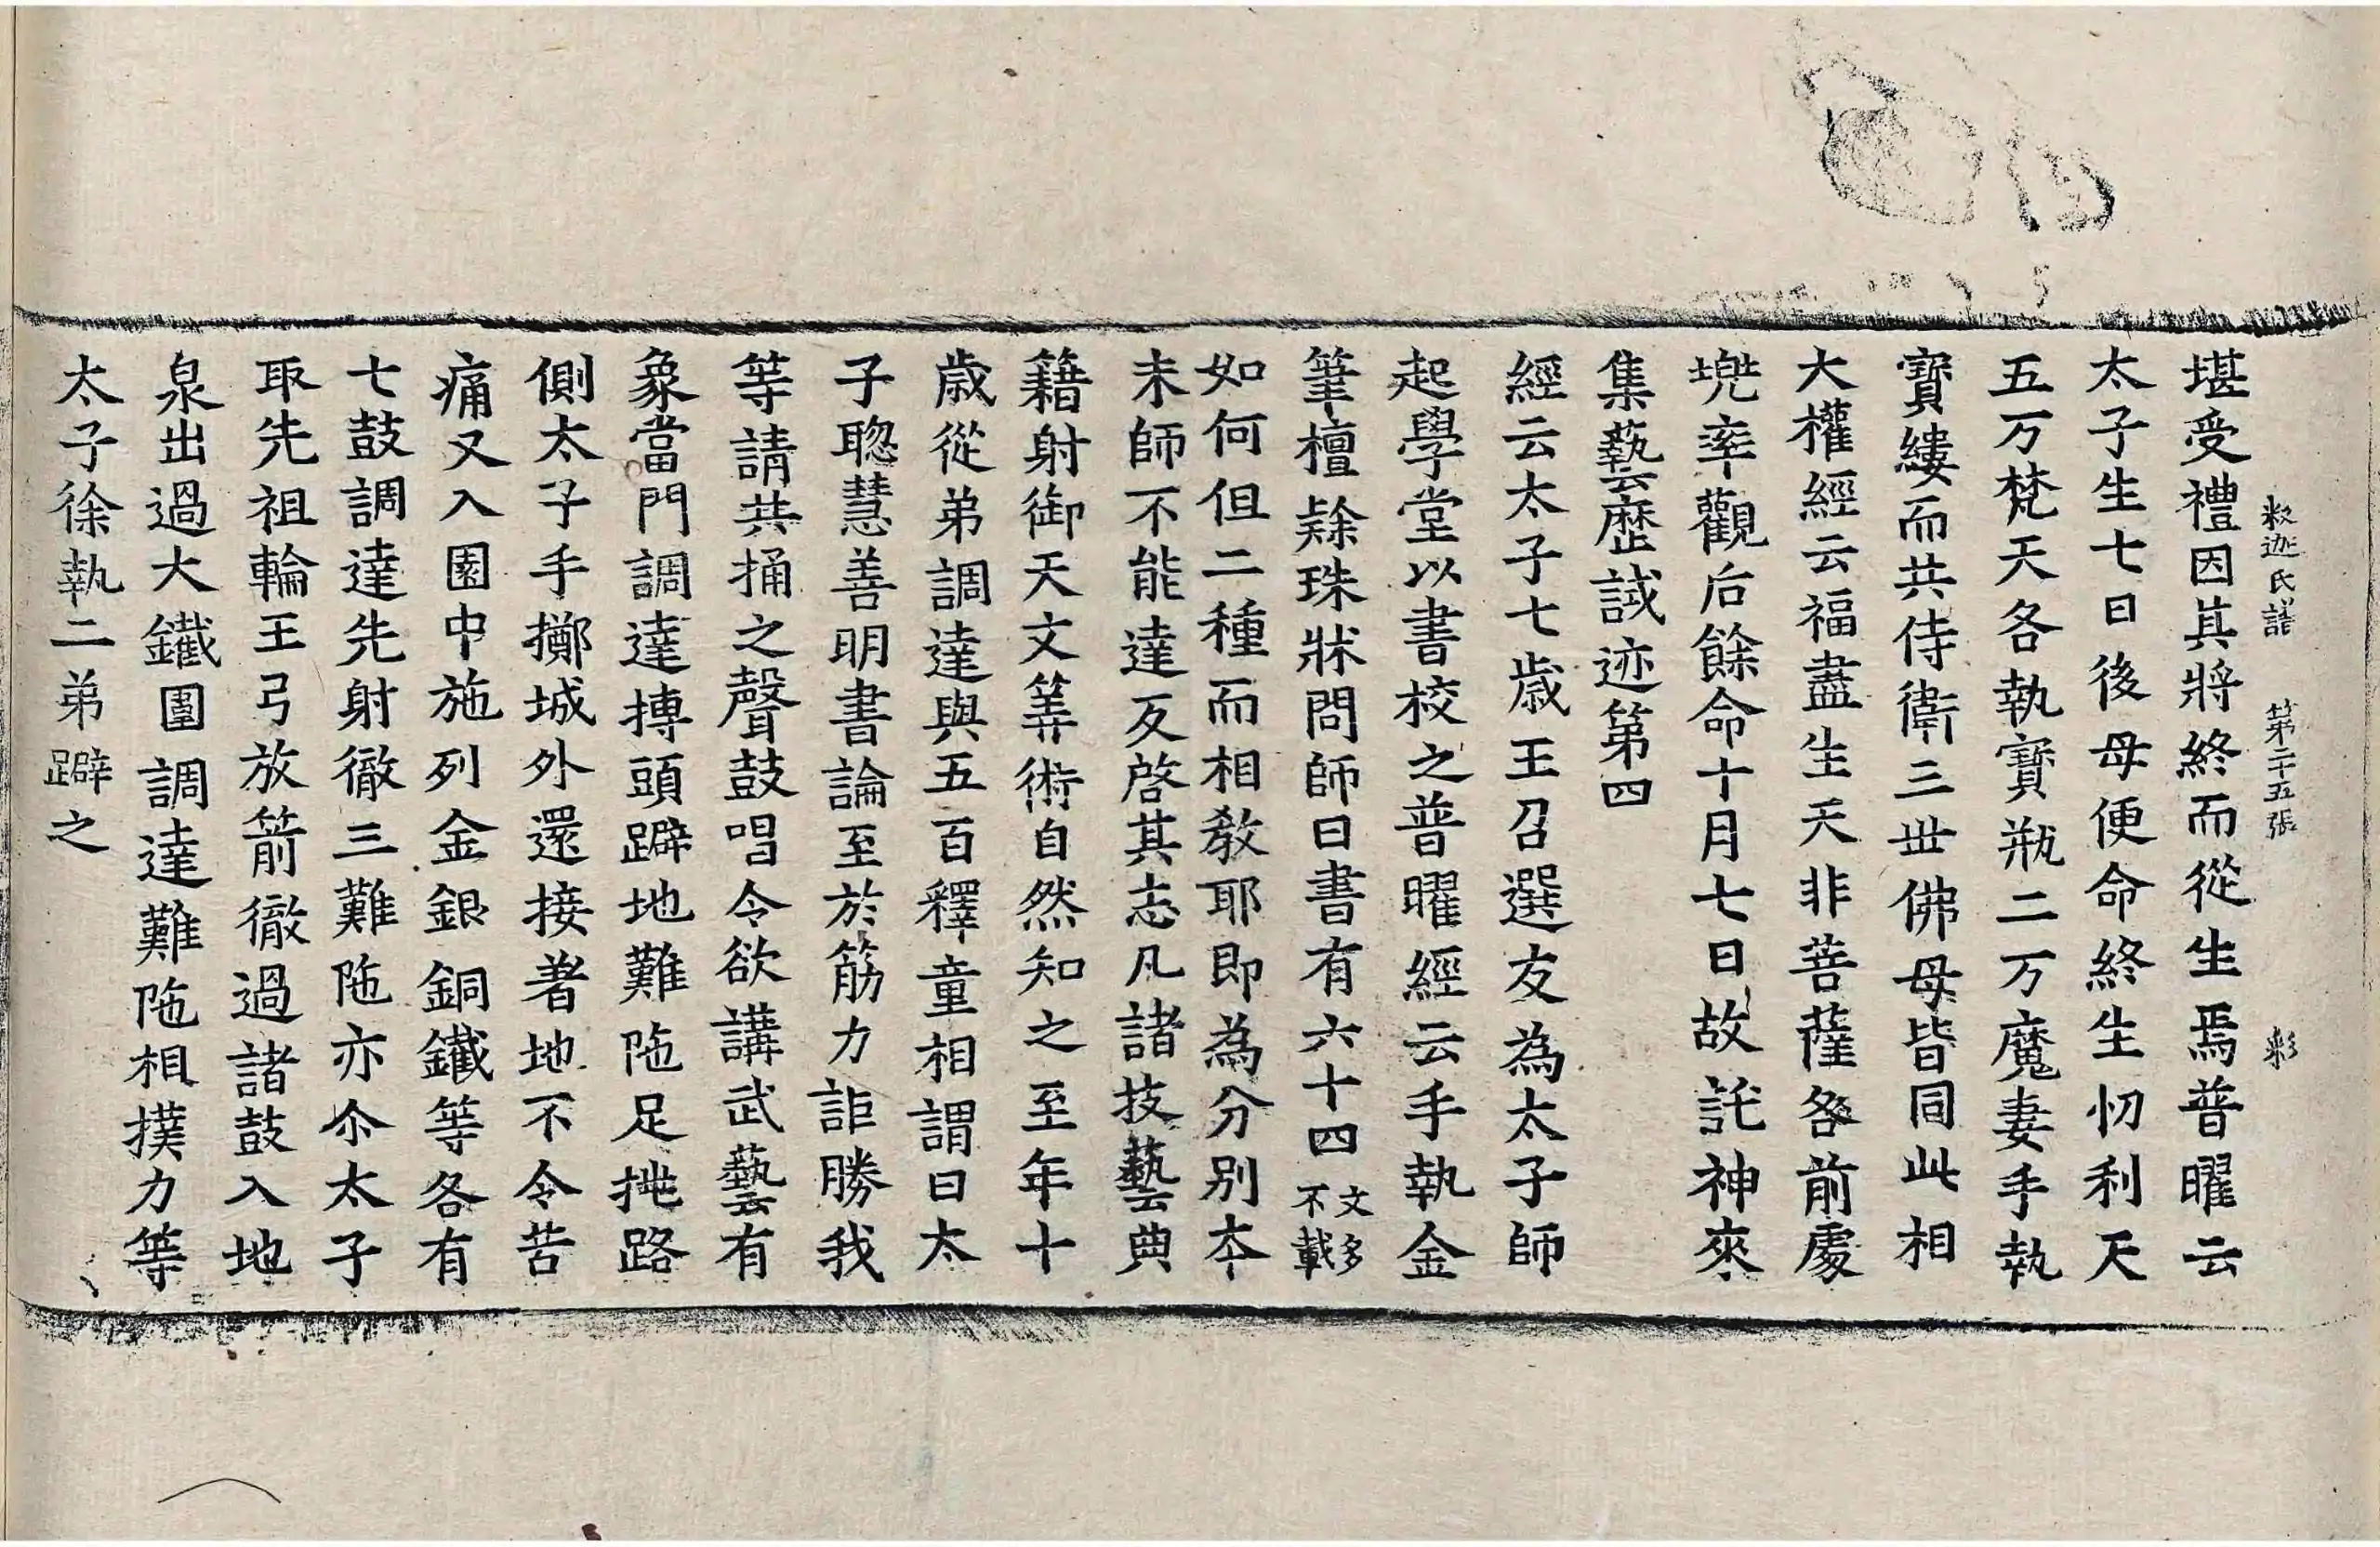 釈迦氏譜 第二十五張 彩
堪受禮因其將終而從生焉普曜云
太子生七日後母便命終生忉利天
五万梵天各執寶瓶二万魔妻手執
寶縷而共侍衛三世佛母皆同此相
大權經云福盡生天非菩薩咎前處
兠率觀后餘命十月七日故託神來
集藝歷試迹第四
經云太子七歲王召選友為太子師
起學堂以書校之普曜經云手執金
筆檀隸珠牀問師曰書有六十四文多不載
如何但二種而相教耶即為分別本
末師不能達反啓其志凡諸技藝典
籍射御天文筭術自然知之至年十
歲從弟調達與五百釋童相謂曰太
子聦慧善明書論至於筋力詎勝我
等請共捅之聲鼓唱令欲講武藝有
象當門調達摶頭躃地難陁足挑路
側太子手擲城外還接著地不令苦
痛又入園中施列金銀銅鐵等各有
七鼓調達先射徹三難陁亦尒太子
取先祖輪王弓放箭徹過諸鼓入地
泉出過大鐵圍調達難陁相撲力等
太子徐執二弟躃之